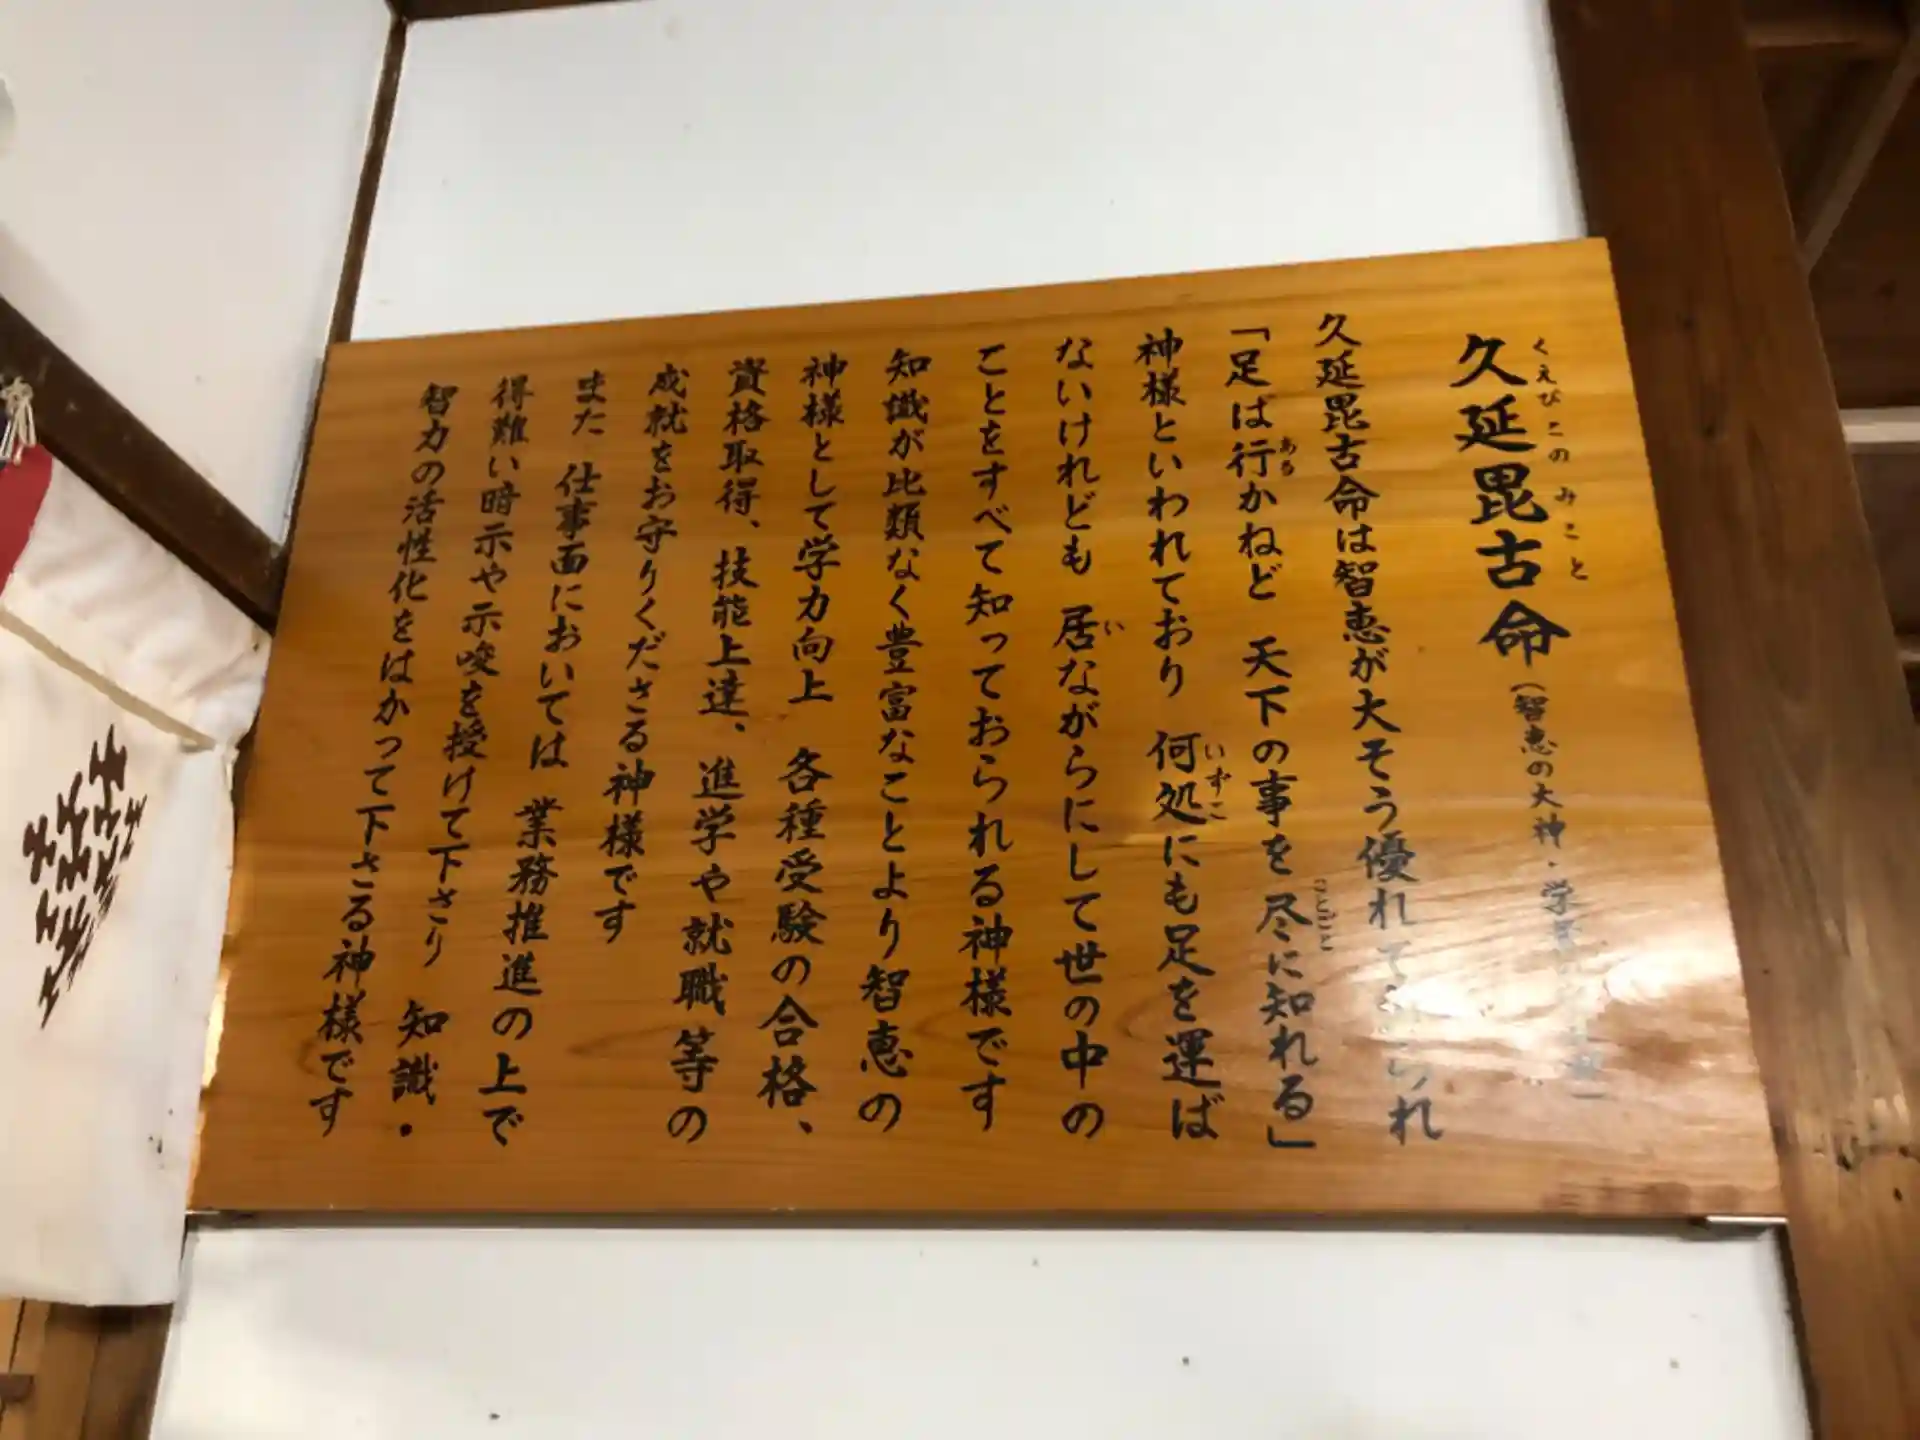 久延毘古命（智恵の大神・学
くえびこの みこと
久延毘古命は智恵が大そう優れて られ
「足は行かねど 天下の事を尽に知れる」
ある
ことごと
神様といわれており 何処にも足を運ば
いずこ
ないけれども 居ながらにして世の中の
い
ことをすべて知っておられる神様です
知識が比類なく豊富なことより智恵の
神様として学力向上 各種受験の合格、
資格取得、技能上達、進学や就職等の
成就をお守りくださる神様です
また 仕事面においては 業務推進の上で
得難い暗示や示唆を授けて下さり 知識・
智力の活性化をはかって下さる神様です